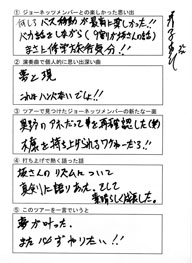 ①ジョーネッツメンバーとの楽しかった思い出
何しろバス移動が最高に楽しかった!!
バカ話をしながら(9割が坂さんの話)
まさしく修学旅行気分!!
②演奏曲で個人的に思い出深い曲
夢と現
これはハズせないでしょ。
③ツアーで見つけたジョーネッツメンバーの新たな一面
真野のアネだって事を再確認した(笑)
木原を持ち上げられるワタシったら?
④打ち上げで熱く語った話
坂さんのリズムについて
真剣に語りあえ、そして
素晴らしく涙した。
⑤このツアーを一言でいうと
夢が叶った。
また必ずやりたい!!